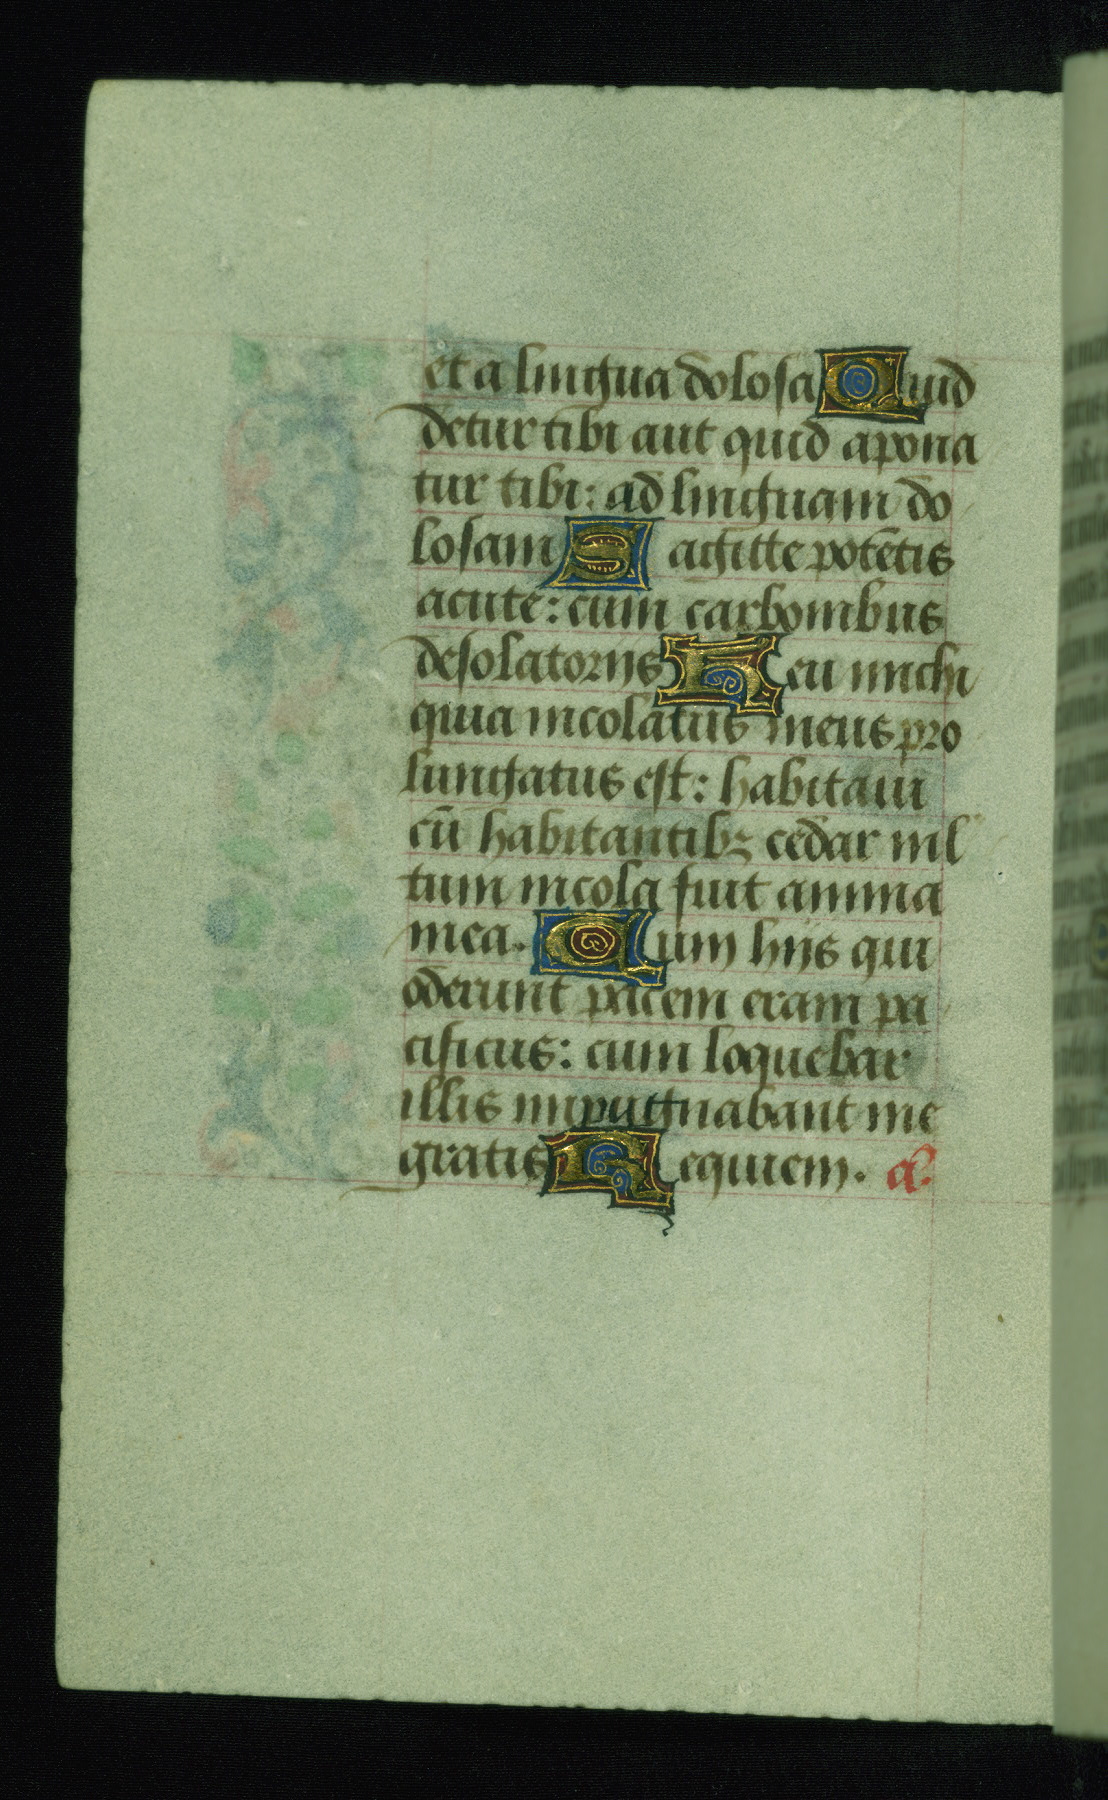 et a lingua dolosa Quid
detur tibi aut quid apona
tur tibi: ad linguam do
losam Sagitte potētis
acute: cum carbonibus
desolatoriis Heu michi
quia incolatus meus pro
lungatus est: habitaui
cū habitantibꝫ cedar mĺ
tum incola fuit anima
mea. Cum hiis qui
oderunt pacem eram pa
cificus: cum loquebar
illis inpugnabant me
gratis Requiem. a.